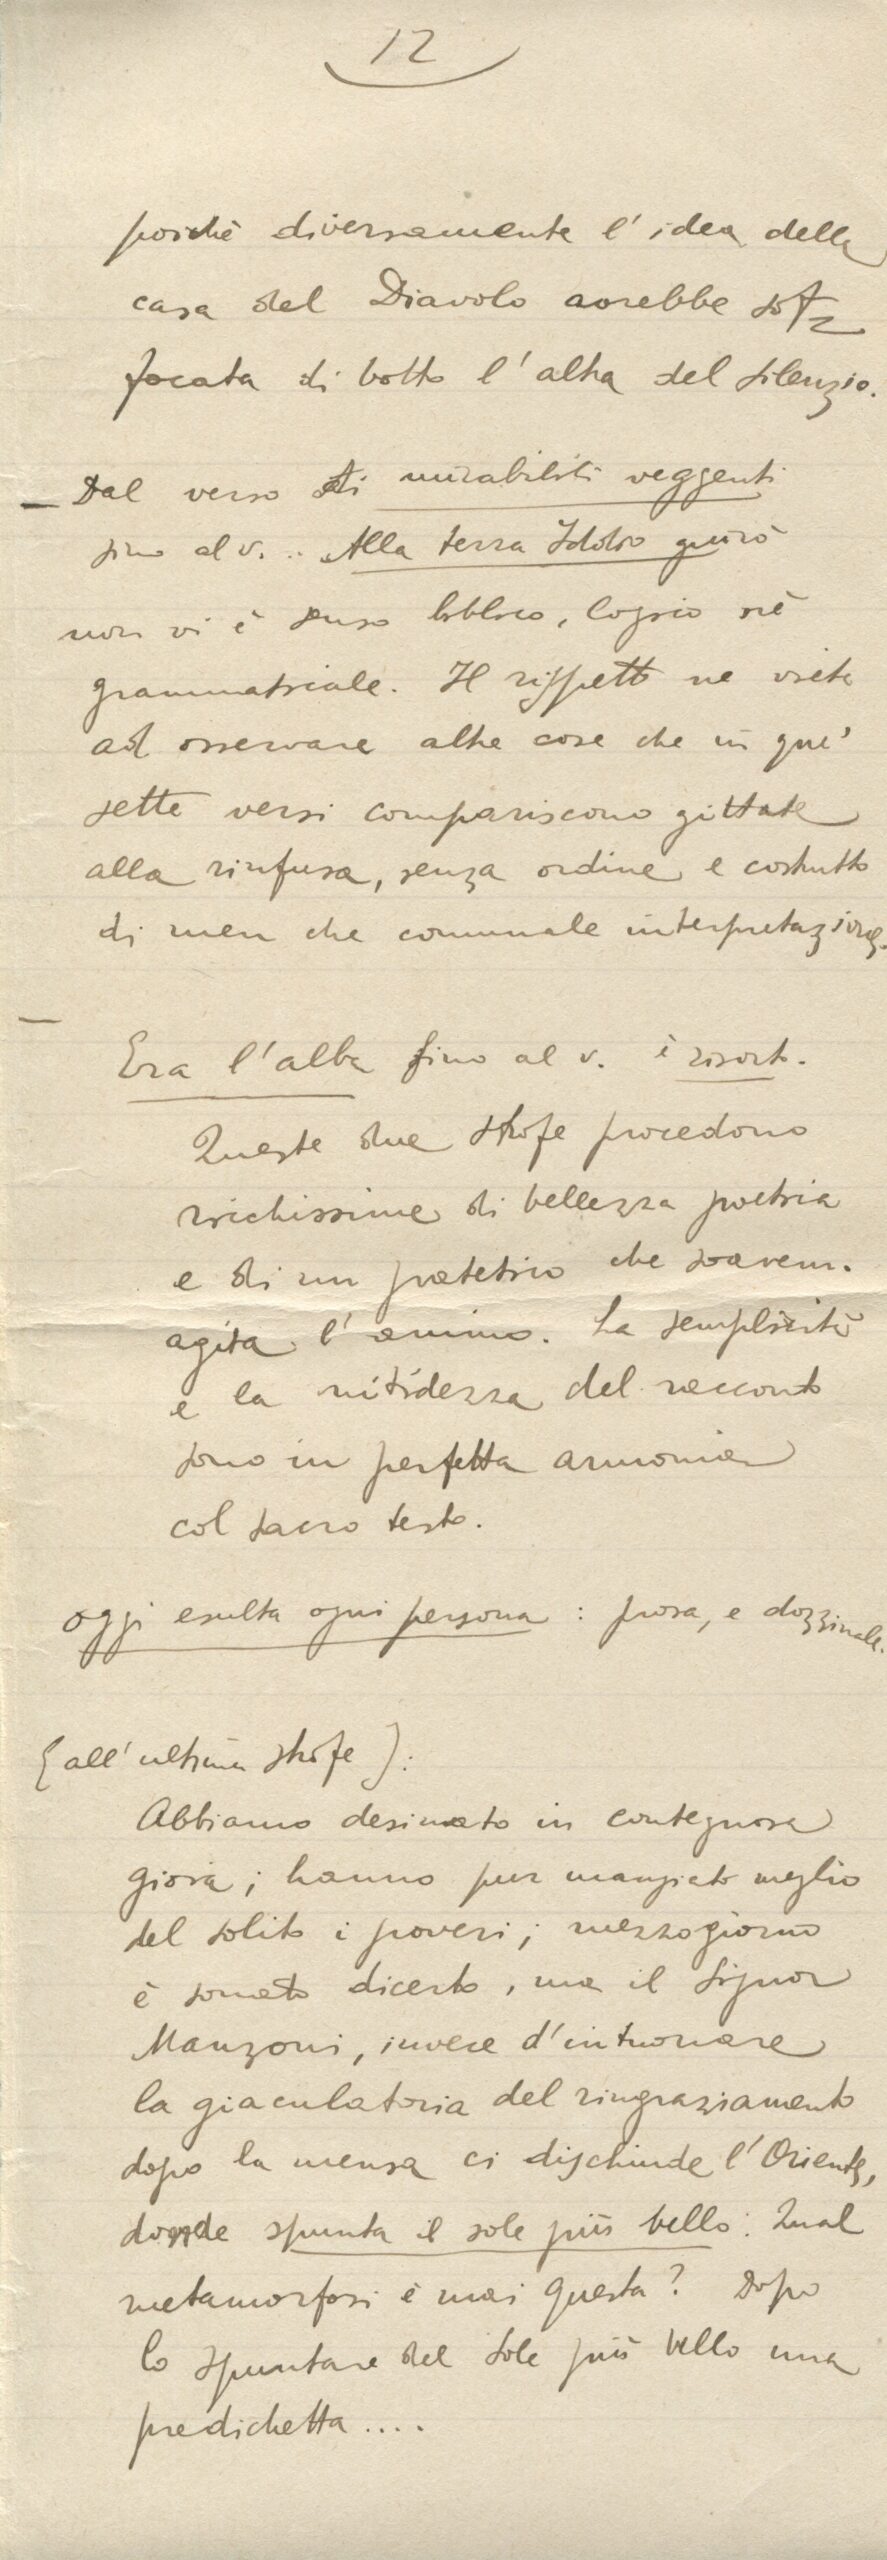 12
poichè diversamente l'idea della
casa del Diavolo avrebbe sof=
focata di botto l'altra del silenzio.
— Dal verso Ai mirabili veggenti
fino al v. .. Alla terra Iddio giurò
non vi è senso biblico, logico nè
grammaticale. Il rispetto ne vieta
ad osservare altre cose che in que'
sette versi compariscono gittate
alla rinfusa, senza ordine e costrutto
di men che comunale interpretazione.
— Era l'alba fino al v. è risorto.
Queste due strofe procedono
ricchissime di bellezza poetica
e di un patetico che soavem.
agita l'animo. La semplicità
e la nitidezza del racconto
sono in perfetta armonia
col sacro testo.
oggi esulta ogni persona : prosa, e dozzinale.
[all'ultima strofe]:
Abbiamo desinato in contegnosa
gioia; hanno pur mangiato meglio
del solito i poveri; mezzogiorno
è sonato dicerto, ma il Signor
Manzoni, invece d'intuonare
la giaculatoria del ringraziamento
dopo la mensa ci dischiude l'Oriente,
donde spunta il sole più bello. Qual
metamorfosi è mai questa? Dopo
lo spuntare del sole più bello una
predichetta ....